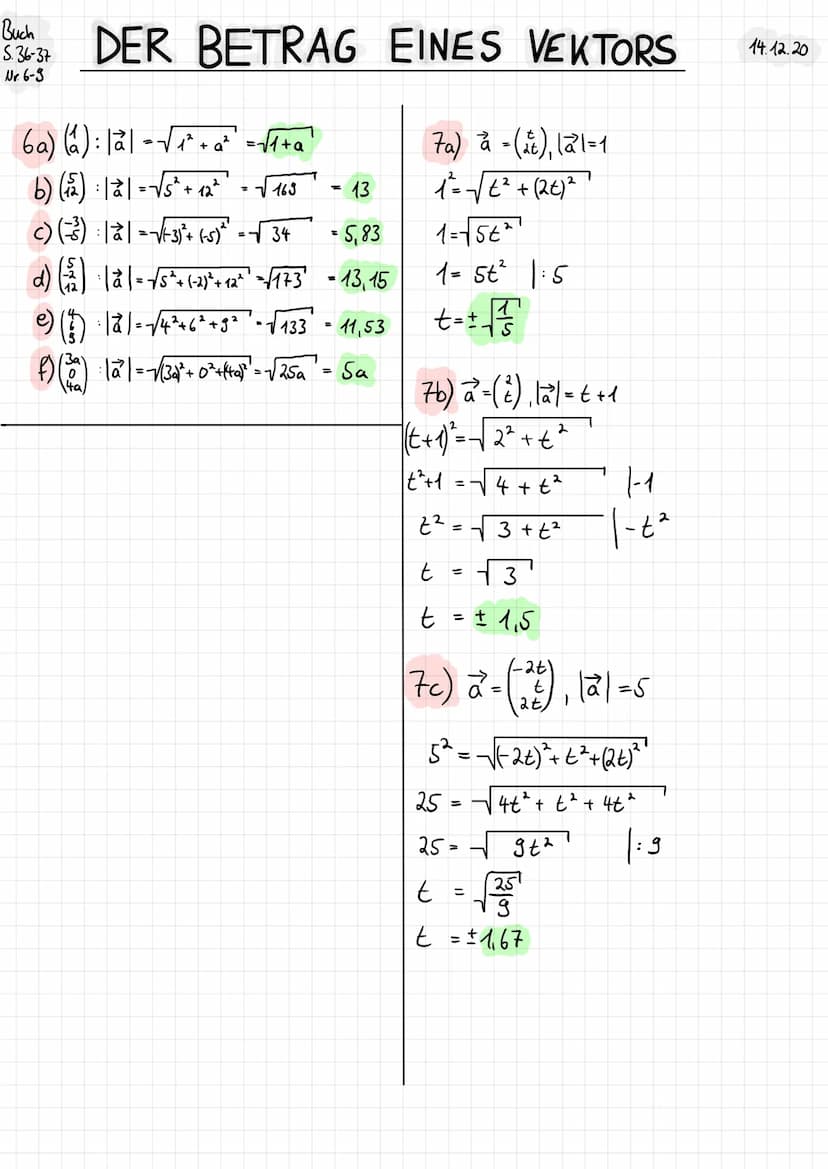 Buch
S. 36-37
Nr 6-9
DER BETRAG EINES VEKTORS
14.12.20
6a) (1 a) : |a⃗| = √(1² + a²) = √(1+a)
b) (5 12) : |a⃗| = √(5² + 12²) = √169 = 13
c) (-3 -5) : |a⃗| = √((-3)² + (-5)²) = √34 = 5,83
d) (5 -2 12) : |a⃗| = √(5² + (-2)² + 12²) = √173 = 13,15
e) (4 6 9) : |a⃗| = √(4² + 6² + 9²) = √133 = 11,53
f) (3a 0 4a) : |a⃗| = √((3a)² + 0² + (4a)²) = √25a = 5a
7a) a⃗ = (t 2t), |a⃗| = 1
1² = √(t² + (2t)²)
1 = √5t²
1 = 5t² |:5
t = ± √(1/5)
7b) a⃗ = (2 t), |a⃗| = t + 1
(t+1)² = √(2² + t²)
t²+1 = √(4 + t²) |-1
t² = √(3 + t²) |-t²
t = √3
t = ± 1,5
7c) a⃗ = (-2t t 2t), |a⃗| = 5
5² = √((-2t)² + t² + (2t)²)
25 = √(4t² + t² + 4t²)
25 = √9t² |:9
t = √(25/9)
t = ± 1,67